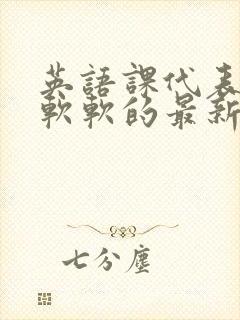 英語課代表
軟軟的最新
七分塵